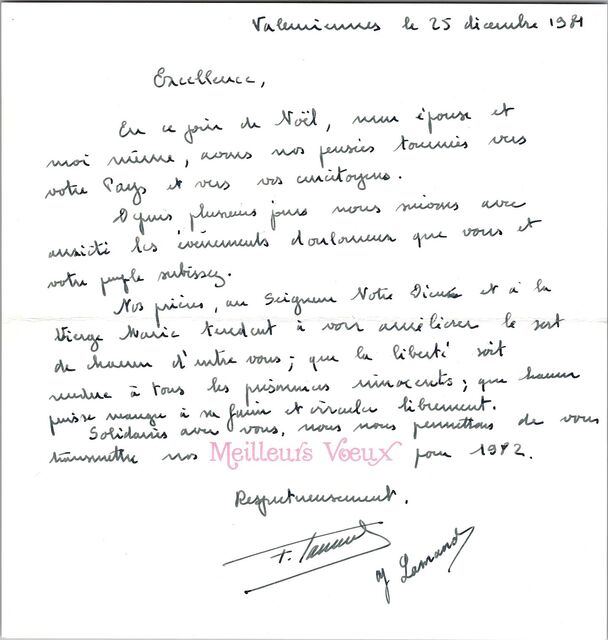 Valenciennes le 25 décembre 1981
Excellence,
En ce jour de Noël, mon épouse et
moi même, avons nos pensées tournées vers
votre Pays et vers vos concitoyens.
Depuis plusieurs jours nous suivons avec
anxiété les événements douloureux que vous et
votre peuple subissez.
Nos prières, au Seigneur Notre Dieu et à la
Vierge Marie tendent à voir améliorer le sort
de chacun d'entre vous; que la liberté soit
rendue à tous les prisonniers innocents; que chacun
puisse manger à sa faim et circuler librement.
Solidaires avec vous, nous nous permettons de vous
transmettre nos Meilleurs Vœux pour 1982.
Respectueusement.
y Lamand